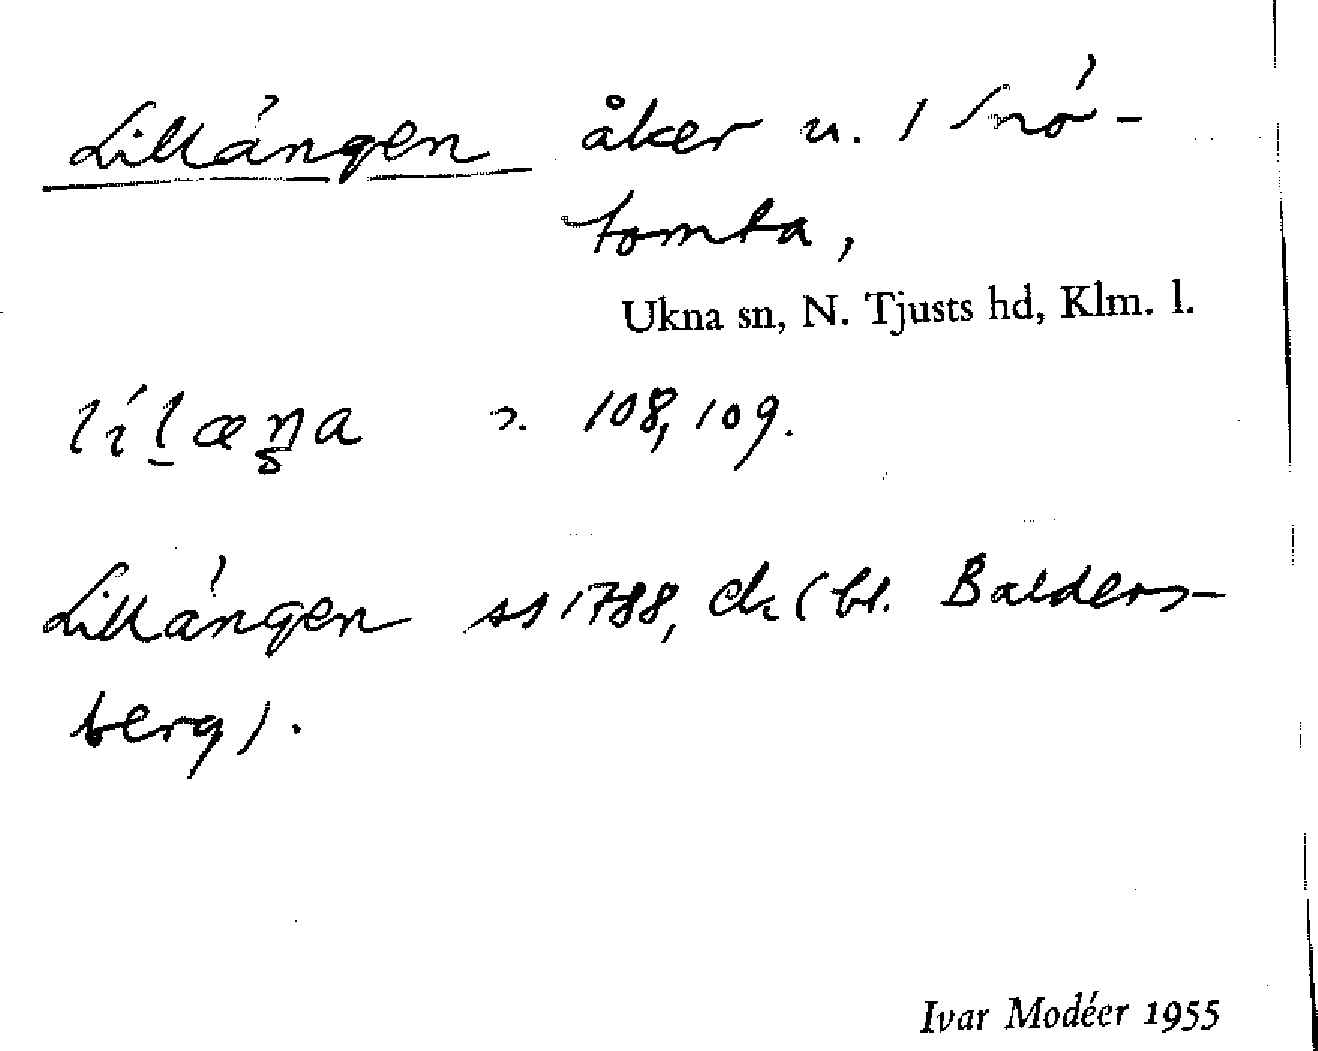 Lillängen åker u. 1 Snö-
tomta,
Ukna sn, N. Tjusts hd, Klm. l.
108, 109.
Lillängen ss 1788, ck (bl. Balders-
berg).
Ivar Modéer 1955